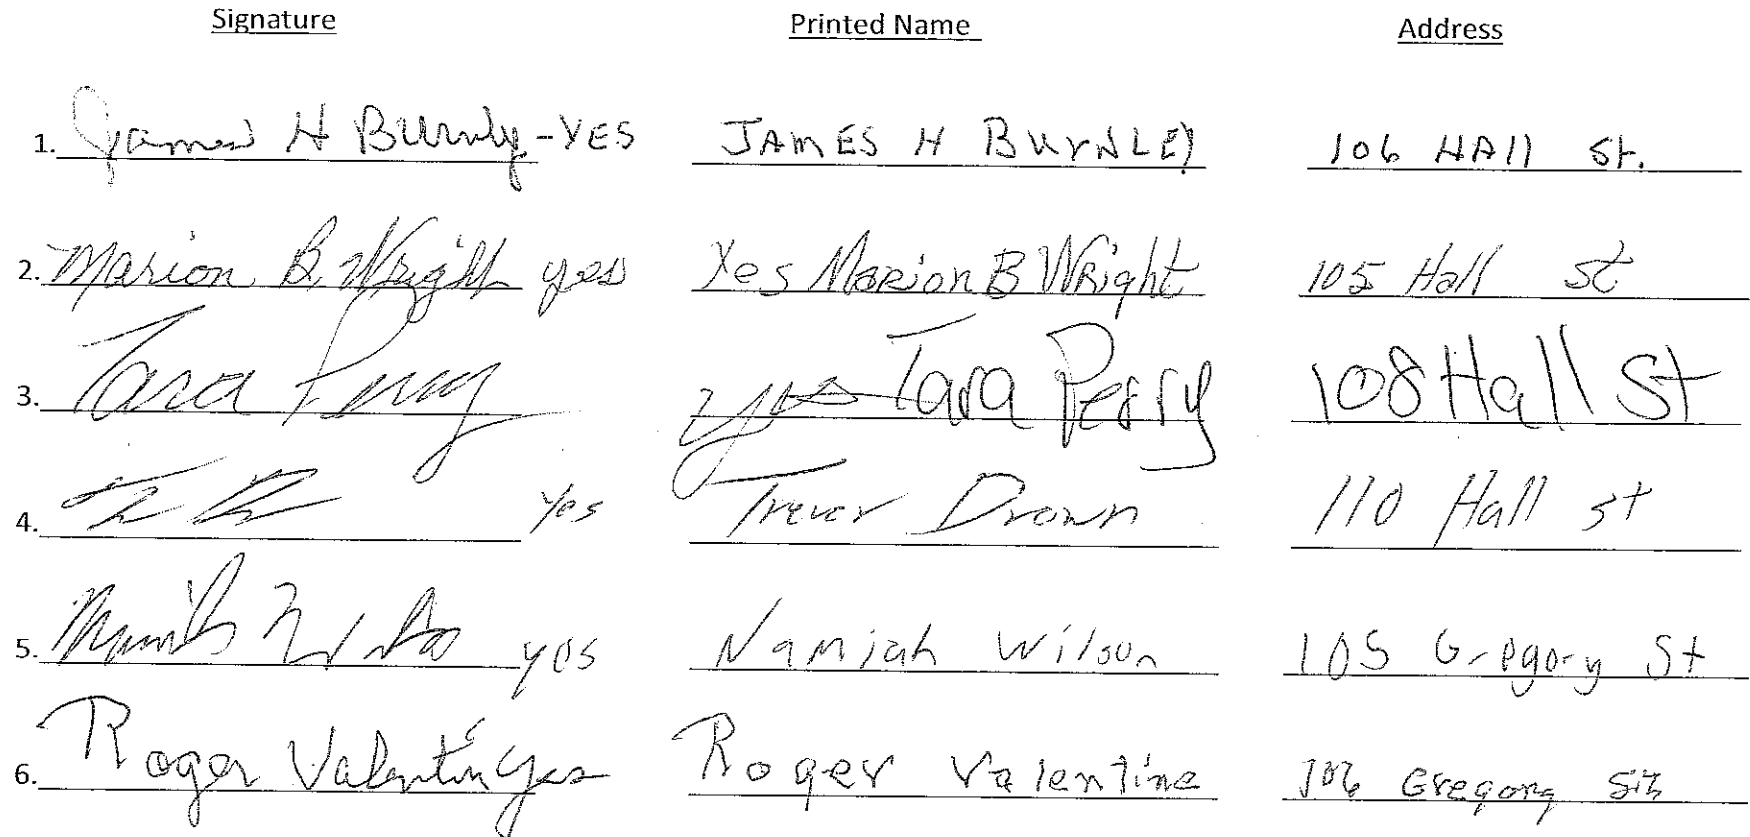 Signature Printed Name Address
1. James H Burnly - YES JAMES H BUrNLEY 106 HAll St.
2. Marion B. Wright yes Yes Marion B Wright 105 Hall St
3. Tara Perry yes Tara Perry 108 Hall St
4. yes Trever Drown 110 Hall st
5. yes Namiah Wilson 105 Gregory St
6. Roger Valentin yes Roger Valentine 106 Gregory